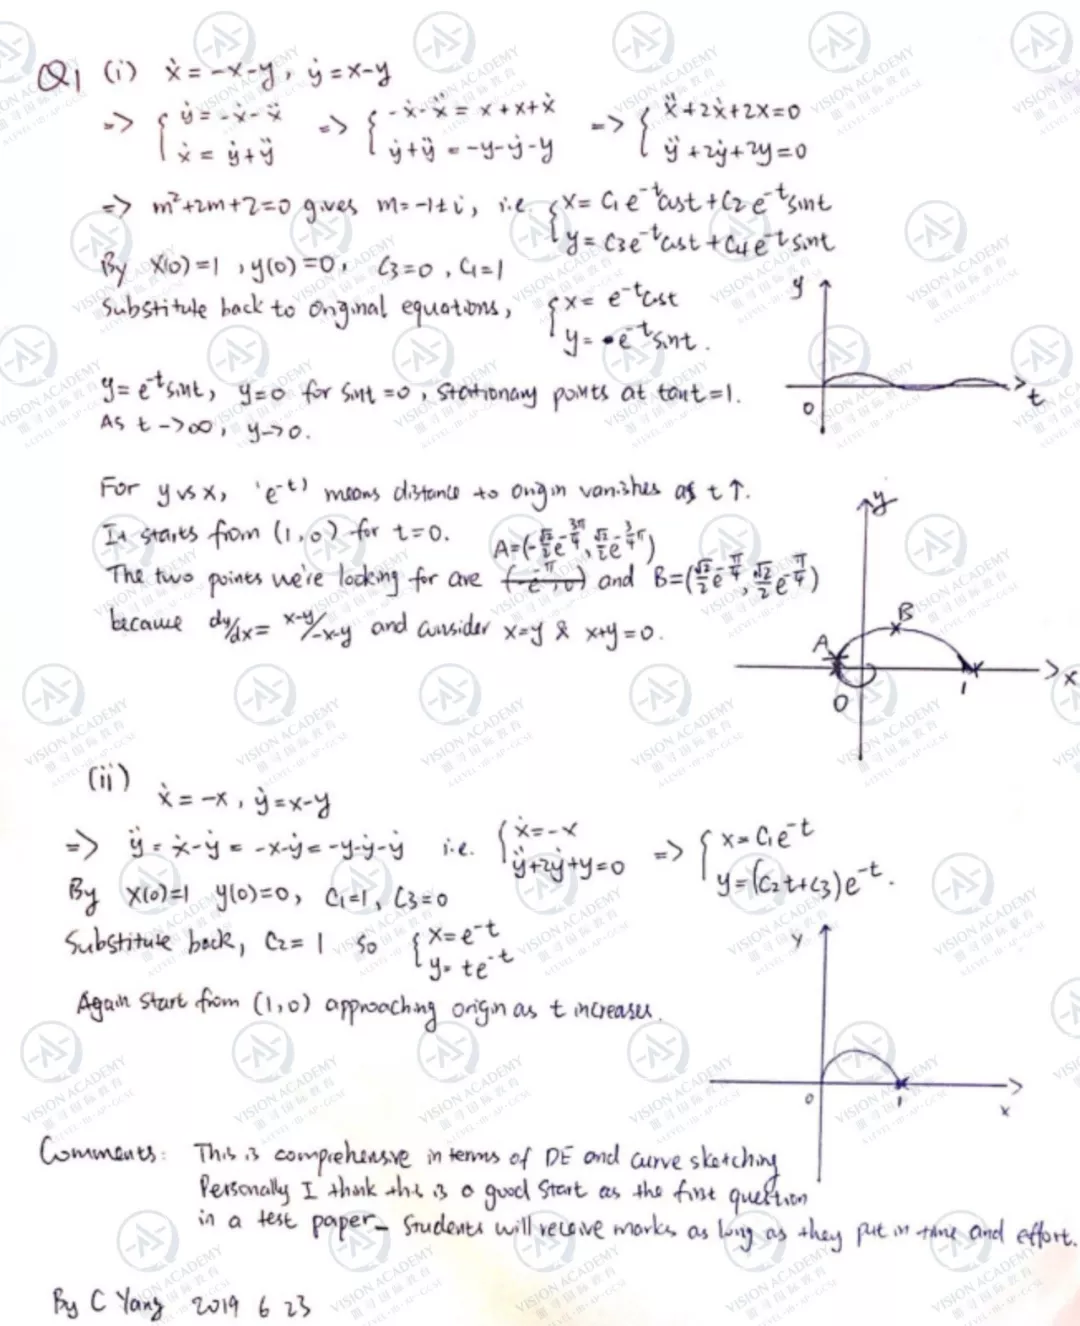 Q1 (i) ẋ = -x-y, ẏ = x-y
=> { ẏ = -ẋ-ẍ => { -ẋ-ẍ = x+x+ẋ => { ẍ+2ẋ+2x=0
ẋ = ẏ+ÿ ẏ+ÿ = -y-ẏ-y ÿ+2ẏ+2y=0
=> m²+2m+2=0 gives m=-1±i, i.e. { x= C1 e^-t cost + C2 e^-t sint
y= C3 e^-t cost + C4 e^-t sint
By x(0)=1, y(0)=0, C3=0, C1=1
Substitute back to original equations, { x= e^-t cost
y= e^-t sint.
y= e^-t sint, y=0 for sint=0, stationary points at tant=1.
As t->∞, y->0.
y
0
t
For y vs x, 'e^-t' means distance to origin vanishes as t↑.
It starts from (1,0) for t=0. A=(-√2/2 e^-3π/4, √2/2 e^-3/4π)
The two points we're looking for are (-e^-π, 0) and B=(√2/2 e^-π/4, √2/2 e^-π/4)
because dy/dx = x-y/-x-y and consider x=y & x+y=0.
y
B
A
0
1
x
(ii)
ẋ = -x, ẏ = x-y
=> ÿ = ẋ-ẏ = -x-ẏ = -y-ẏ-ẏ i.e. { ẋ=-x => { x= C1e^-t
ÿ+2ẏ+y=0 y=(C2t+C3)e^-t.
By x(0)=1 y(0)=0, C1=1, C3=0
Substitute back, C2=1 so { x=e^-t
y= te^-t
Again start from (1,0) approaching origin as t increases.
y
0
1
x
Comments: This is comprehensive in terms of DE and curve sketching
Personally I think this is a good start as the first question
in a test paper - Students will receive marks as long as they put in time and effort.
By C Yang 2019 6 23
VISION ACADEMY
A-LEVEL·IB·AP·GCSE